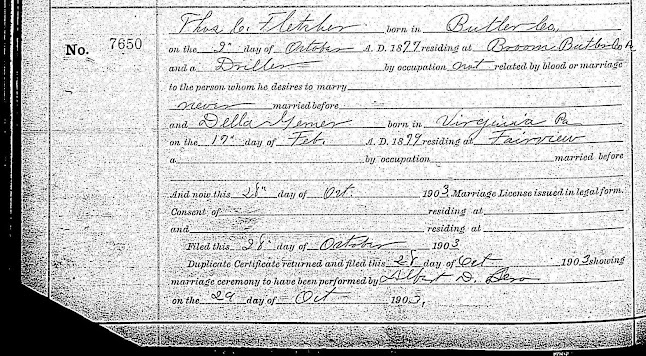 Thos. C. Fletcher born in Butler Co,
No. 7650
on the 2" day of October A. D. 1877 residing at Butler Co Pa
and a Driller by occupation not related by blood or marriage
to the person whom he desires to marry
never married before
and Della born in Virginia Pa
on the 17" day of Feb. A. D. 1879 residing at Fairview
a by occupation married before
And now this 28" day of Oct. 1903, Marriage License issued in legal form.
Consent of residing at
and residing at
Filed this 28" day of October 1903
Duplicate Certificate returned and filed this 28 day of Oct 1903 showing
marriage ceremony to have been performed by Albert D.
on the 29 day of Oct 1903,